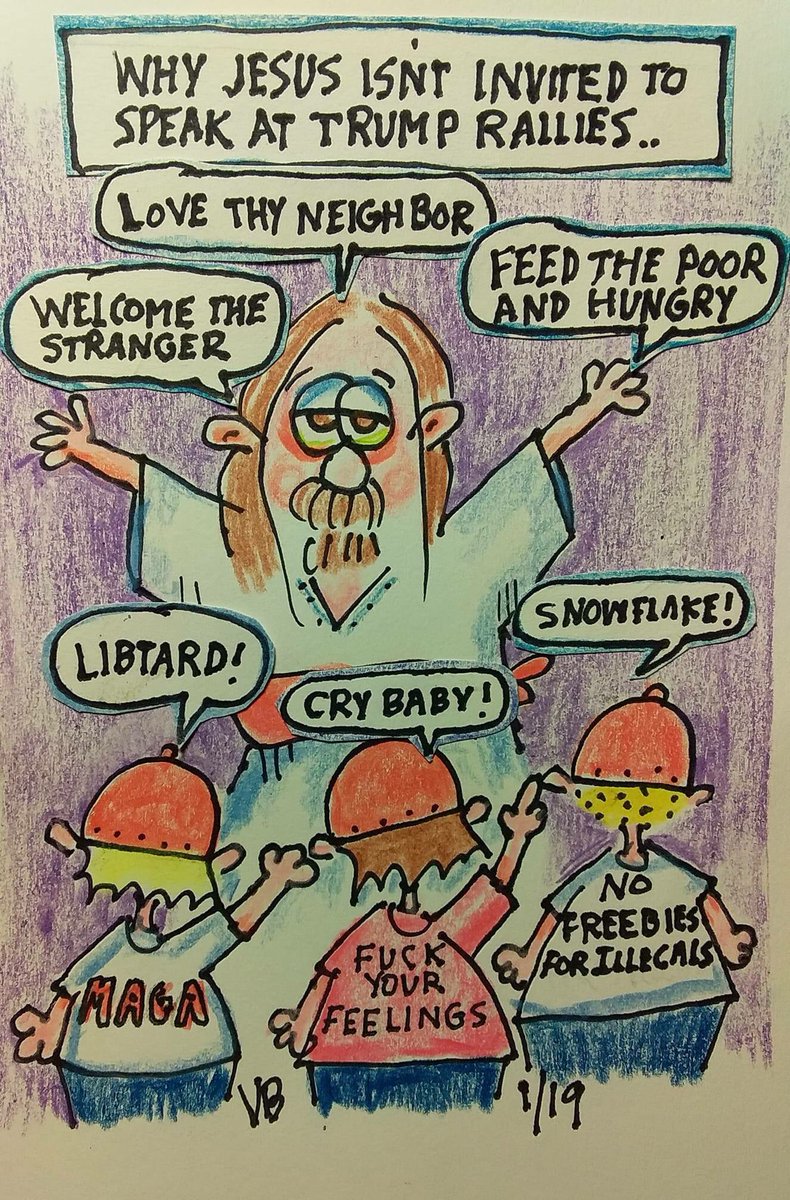 WHY JESUS ISN'T INVITED TO
SPEAK AT TRUMP RALLIES..
LOVE THY NEIGHBOR
WELCOME THE
STRANGER
FEED THE POOR
AND HUNGRY
LIBTARD!
CRY BABY!
SNOWFLAKE!
MAGA
FUCK
YOUR
FEELINGS
NO
FREEBIES
FOR ILLEGALS
VB
1/19